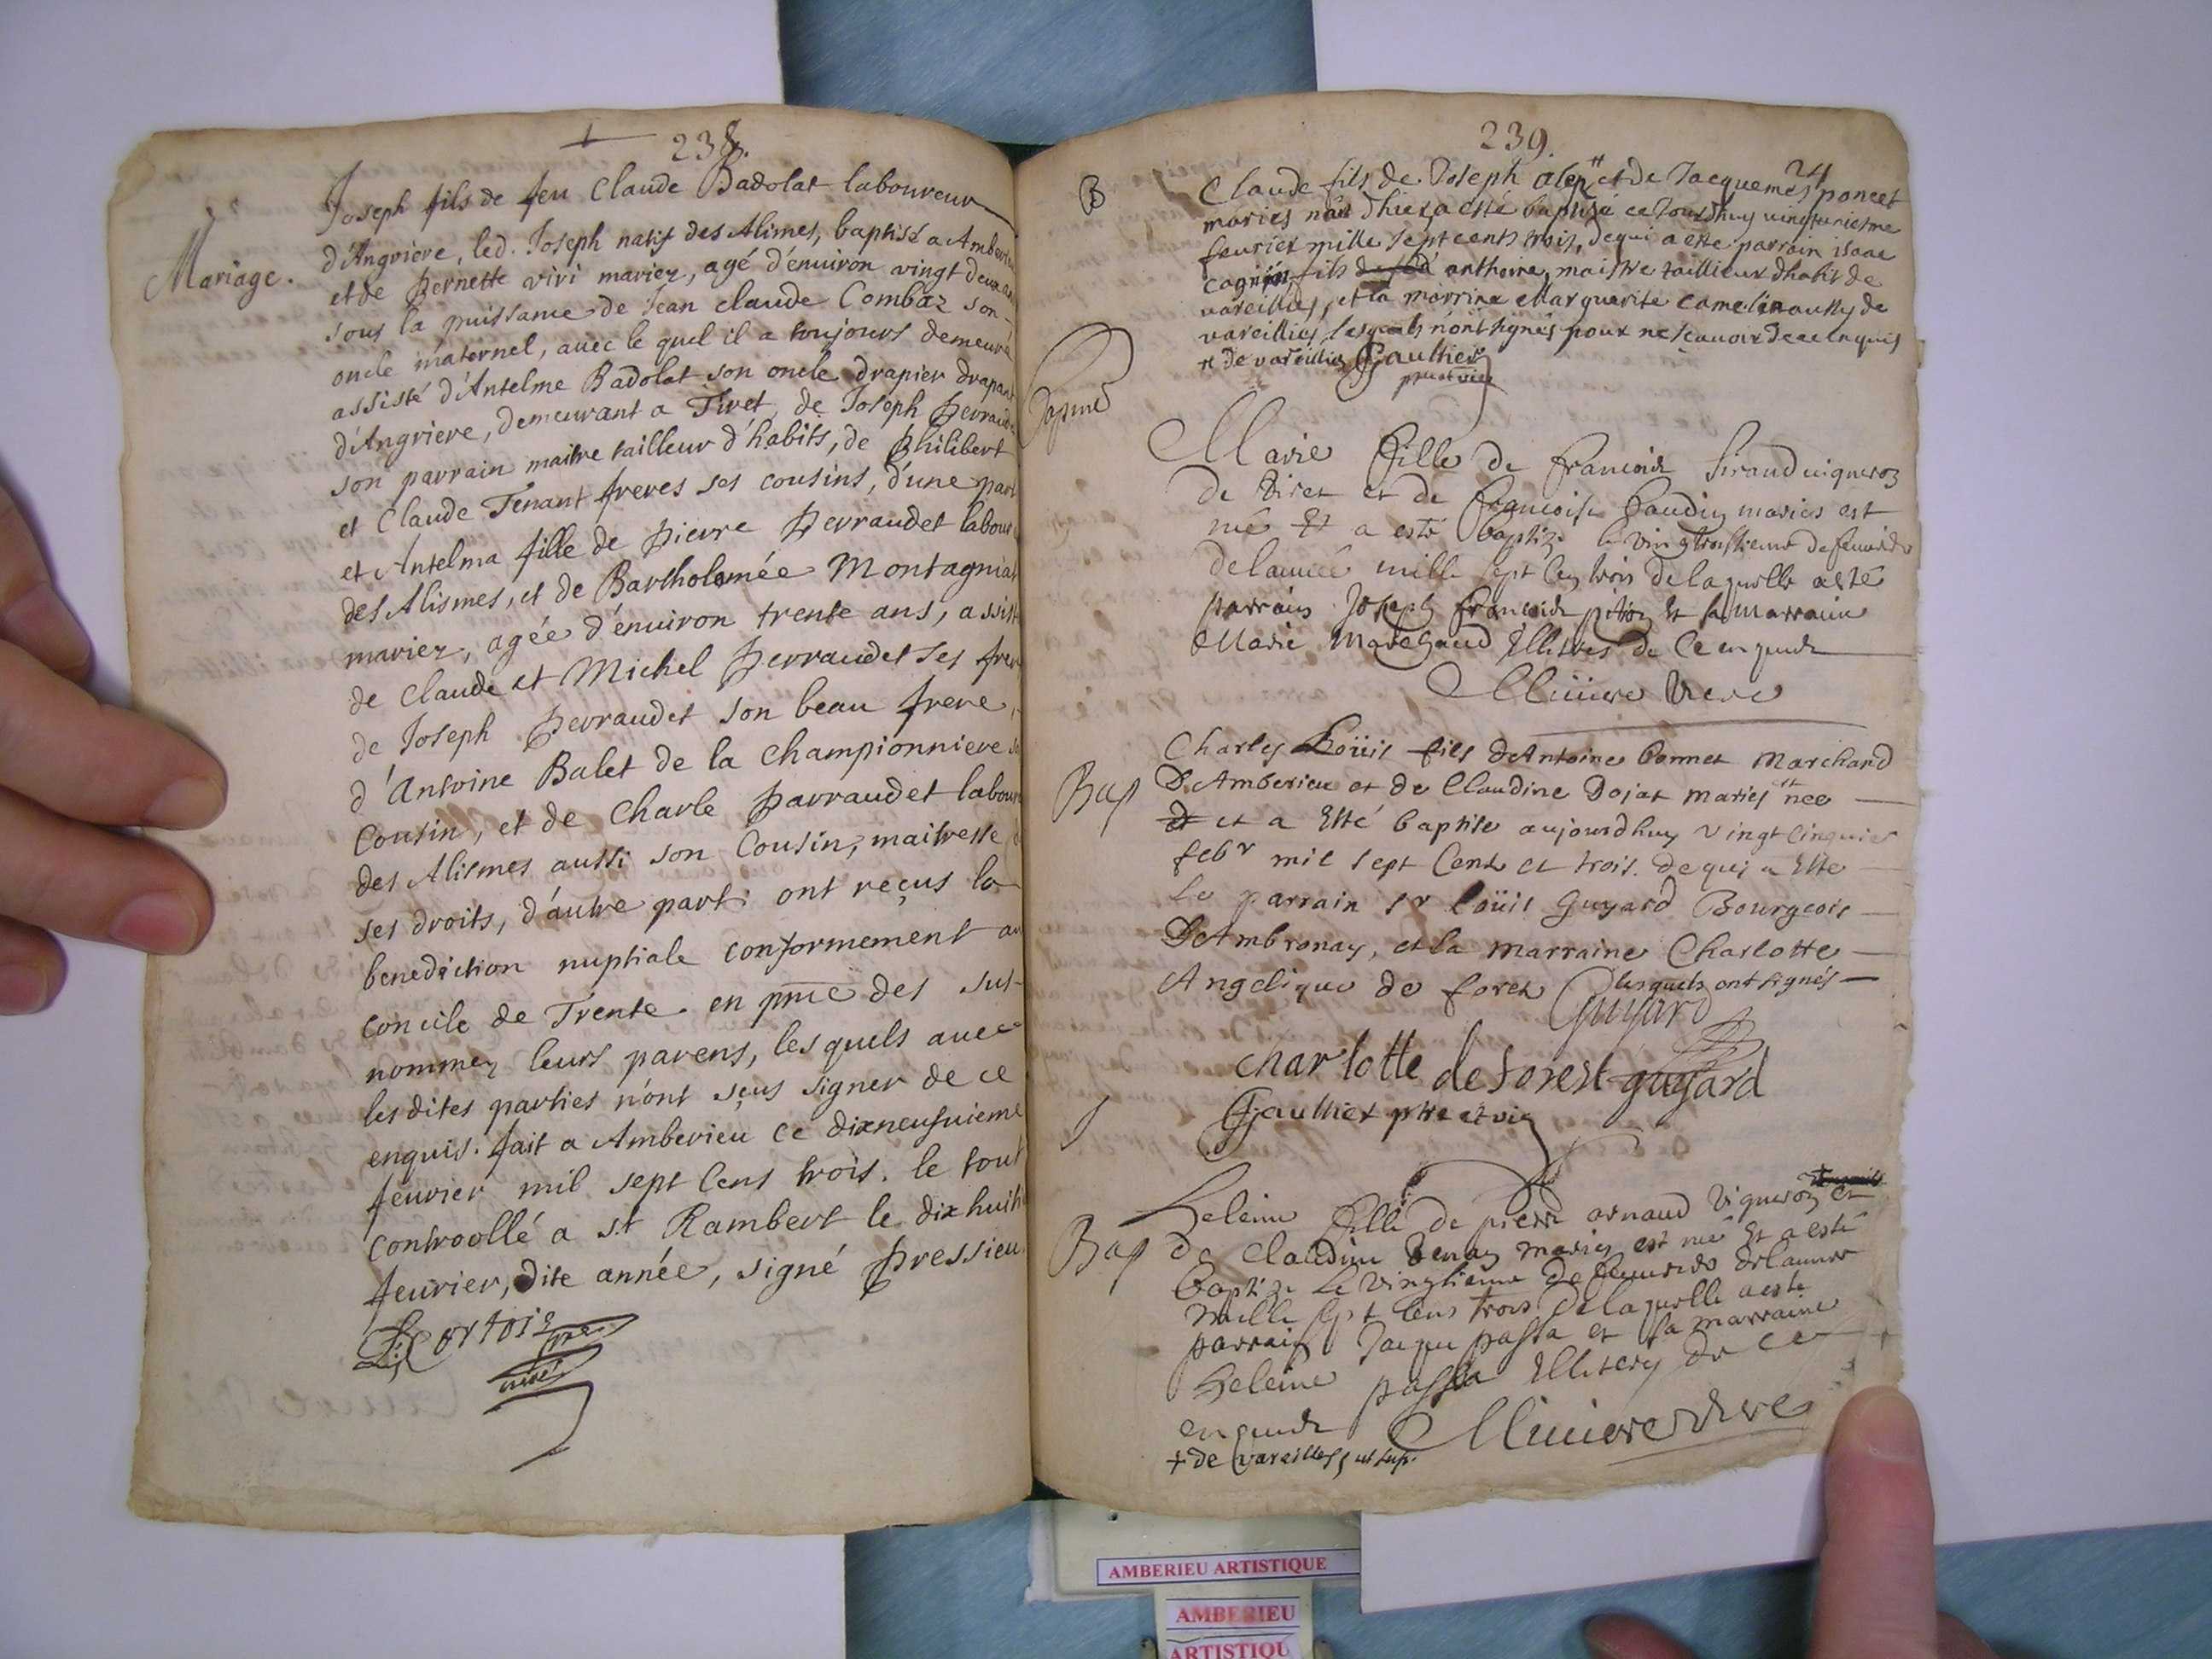 238.
Mariage.
Joseph fils de feu Claude Badolat laboureur
d'Angriere, led. Joseph natif des Alimes, baptisé a Amberieu
et de Pernette vivi mariez, agé d'énuiron vingt deux ans
sous la puissance de Jean claude Combaz son
oncle maternel, auec le quel il a toujours demeuré
assisté d'Antelme Badolat son oncle drapier drapant
d'Angriere, demeurant a Tiret, de Joseph Perraudet
son parrain maitre tailleur d'habits, de Philibert
et Claude Tenant freres ses cousins, d'une part
et Antelma fille de Pierre Perraudet labour
des Alismes, et de Bartholomée Montagniat
mariez, agée d'énuiron trente ans, assist
de Claude et Michel Perraudet ses frer
de Joseph Perraudet son beau frere,
d'Antoine Balet de la Championniere
Cousin, et de Charle Parraudet labour
des Alismes aussi son Cousin, maitresse
ses droits, d'autre part: ont reçus la
benediction nuptiale conformement au
concile de Trente. en pnce des sus-
nommez leurs parens, les quels auec
les dites parties n'ont sçus signer de ce
enquis. fait a Amberieu ce dixneufuieme
feurier mil sept Cens trois. le tout
controollé a s.t Rambert le dix huiti
feurier, dite année, signé Pressieu
Cortois pre
curé
239.
24
B
Claude fils de Joseph alen # et de Jacquemes poncet
maries né dhier a esté baptizé ce Jourdhuy uingtuniesme
feurier mille sept cents trois, de qui a este parrain isaac
cagnin, fils anthoine, maistre taillieur dhabit de
uareillies, et la marrine Marguerite camelin aussy de
uareillies, lesquels n'ont signés poux ne scauoir de ce enquis
# de vareillies Gaultier
pretre et vic
Bapme
Marie fille de francois Siraud uigneron
de Tiret et de francoise Gaudin maries est
né Et a esté baptize le vingtroisieme de feurier
de lannée mille sept Cens trois de laquelle a esté
parrain Joseph francois piton Et sa Marraine
Marie Marchand Illitres de Ce enquis
Miuiere Vicre
Bap
Charles Loüis fils d'Antoine Bonnet Marchand
D'Amberieu et de Claudine Dojat maries est née
et a Esté baptisé aujourdhuy vingt cinquier
feb.r mil sept Cent et trois. de qui a Esté
Le parrain s.r Loüis Guyard Bourgeois
D'Ambronay, et la marraine Charlotte
Angelique de forez lesquels ont signés
Guyard
charlotte de forest guyard
Gaultier ptre et vic
Bap
Heleine fille de pierre arnaud Vigneron + et
de Claudine Tenay maries est né Et a esté
Baptize Le Vingtieme de feurier de lannee
Mille sept Cens trois de laquelle a esté
parrain Jaque passa et sa marraine
Heleine passa Illiteres de ce
enquis Miuiere Vicre
+ de vareilles, ut sup.
AMBERIEU ARTISTIQUE
AMBERIEU
ARTISTIQU